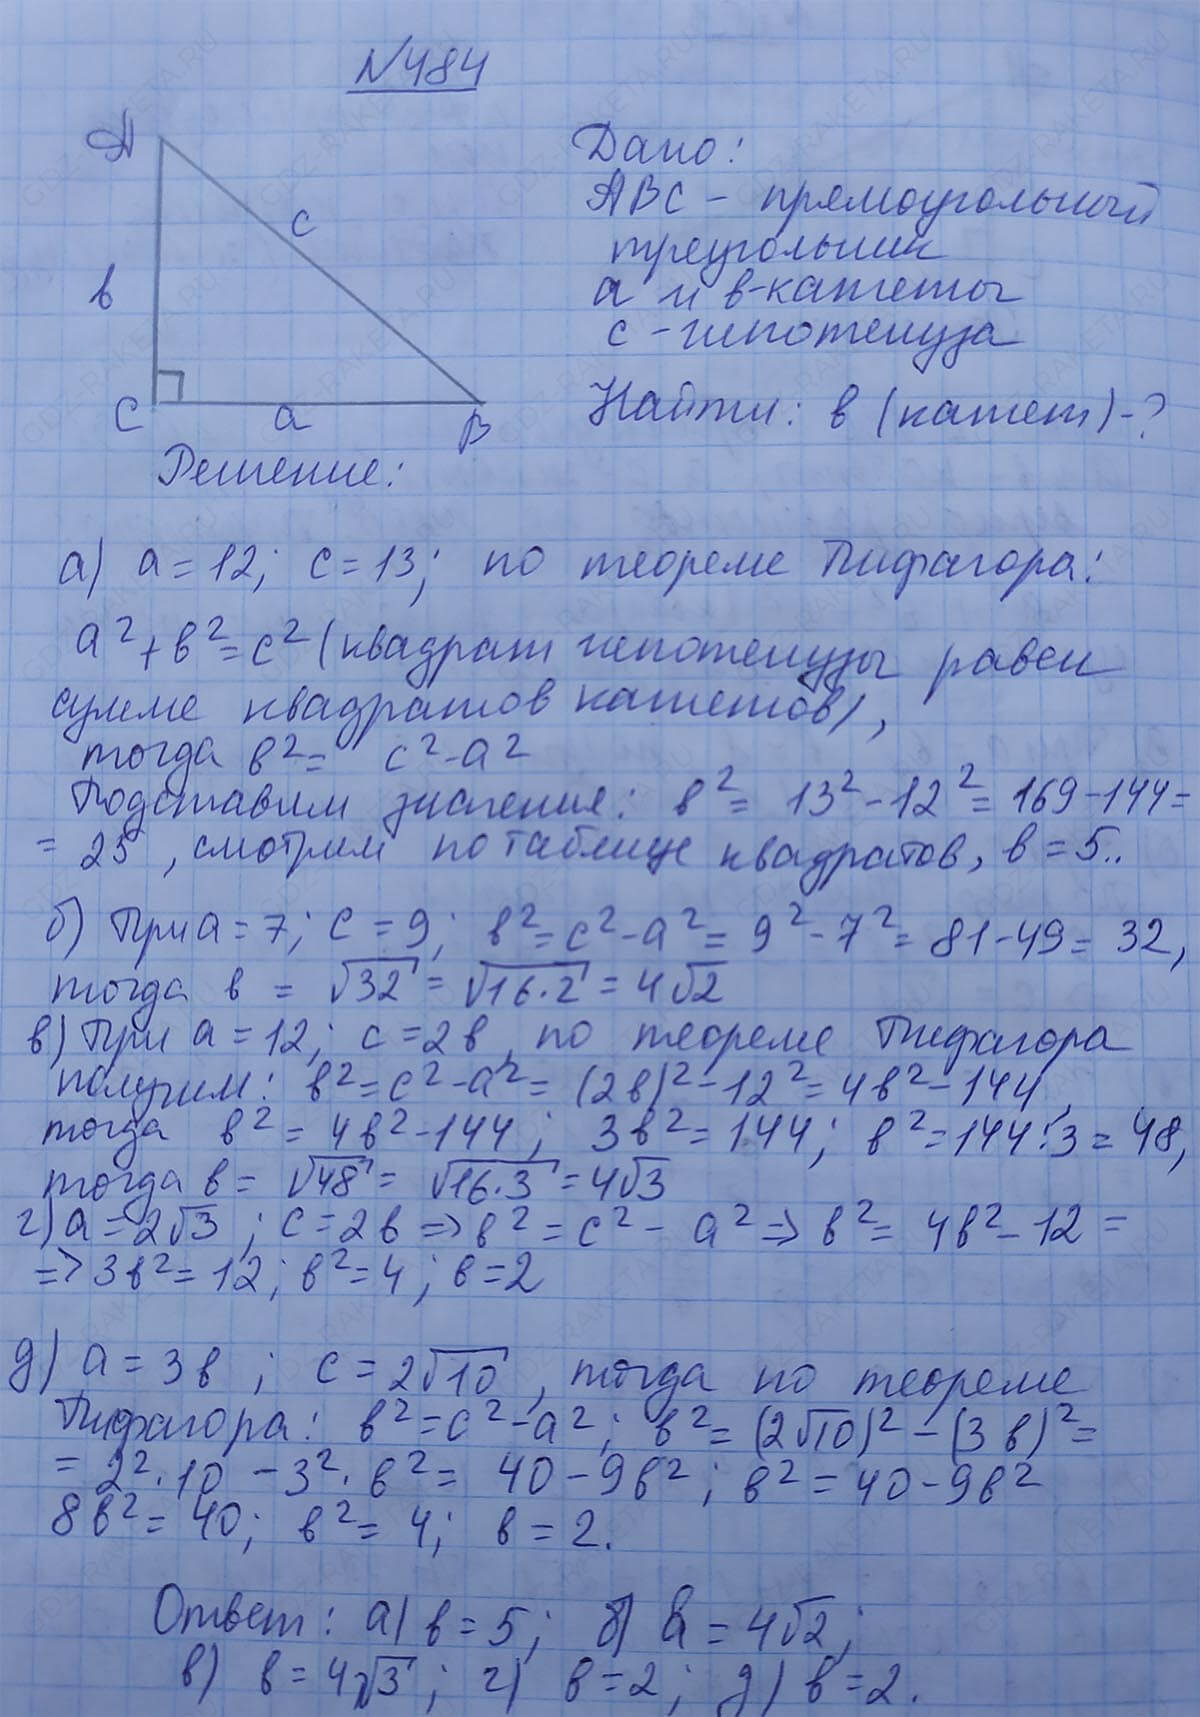 №484
A
c
в
C
a
B
Дано:
ABC - прямоугольный
треугольник
a и в-катеты
c - гипотенуза
Найти: в (катет)-?
Решение:
а) a = 12; c = 13; по теореме Пифагора:
a²+в²=c² (квадрат гипотенузы равен
сумме квадратов катетов),
тогда в²= c²-a²
Подставим значения: в²= 13²-12²=169-144=
= 25, смотрим по таблице квадратов, в = 5..
б) При a = 7; c = 9; в²=c²-a²= 9²-7²= 81-49= 32,
тогда в = √32 = √16·2 = 4√2
в) При a = 12; c = 2в, по теореме Пифагора
получим: в²=c²-a²= (2в)²-12²= 4в²-144,
тогда в²= 4в²-144; 3в²=144; в²=144:3=48,
тогда в = √48 = √16·3 = 4√3
г) a = 2√3; c=2в => в²=c²- a²=> в²= 4в²-12 =
=> 3в²=12; в²=4; в=2
д) a = 3в; c = 2√10, тогда по теореме
Пифагора: в²=c²-a²; в²= (2√10)²-(3в)²=
= 2²·10 -3²·в²= 40-9в²; в²=40-9в²
8в²= 40; в²= 4; в = 2.
Ответ: а) в = 5; б) в = 4√2;
в) в = 4√3; г) в=2; д) в=2.
GDZ-RAKETA.RU